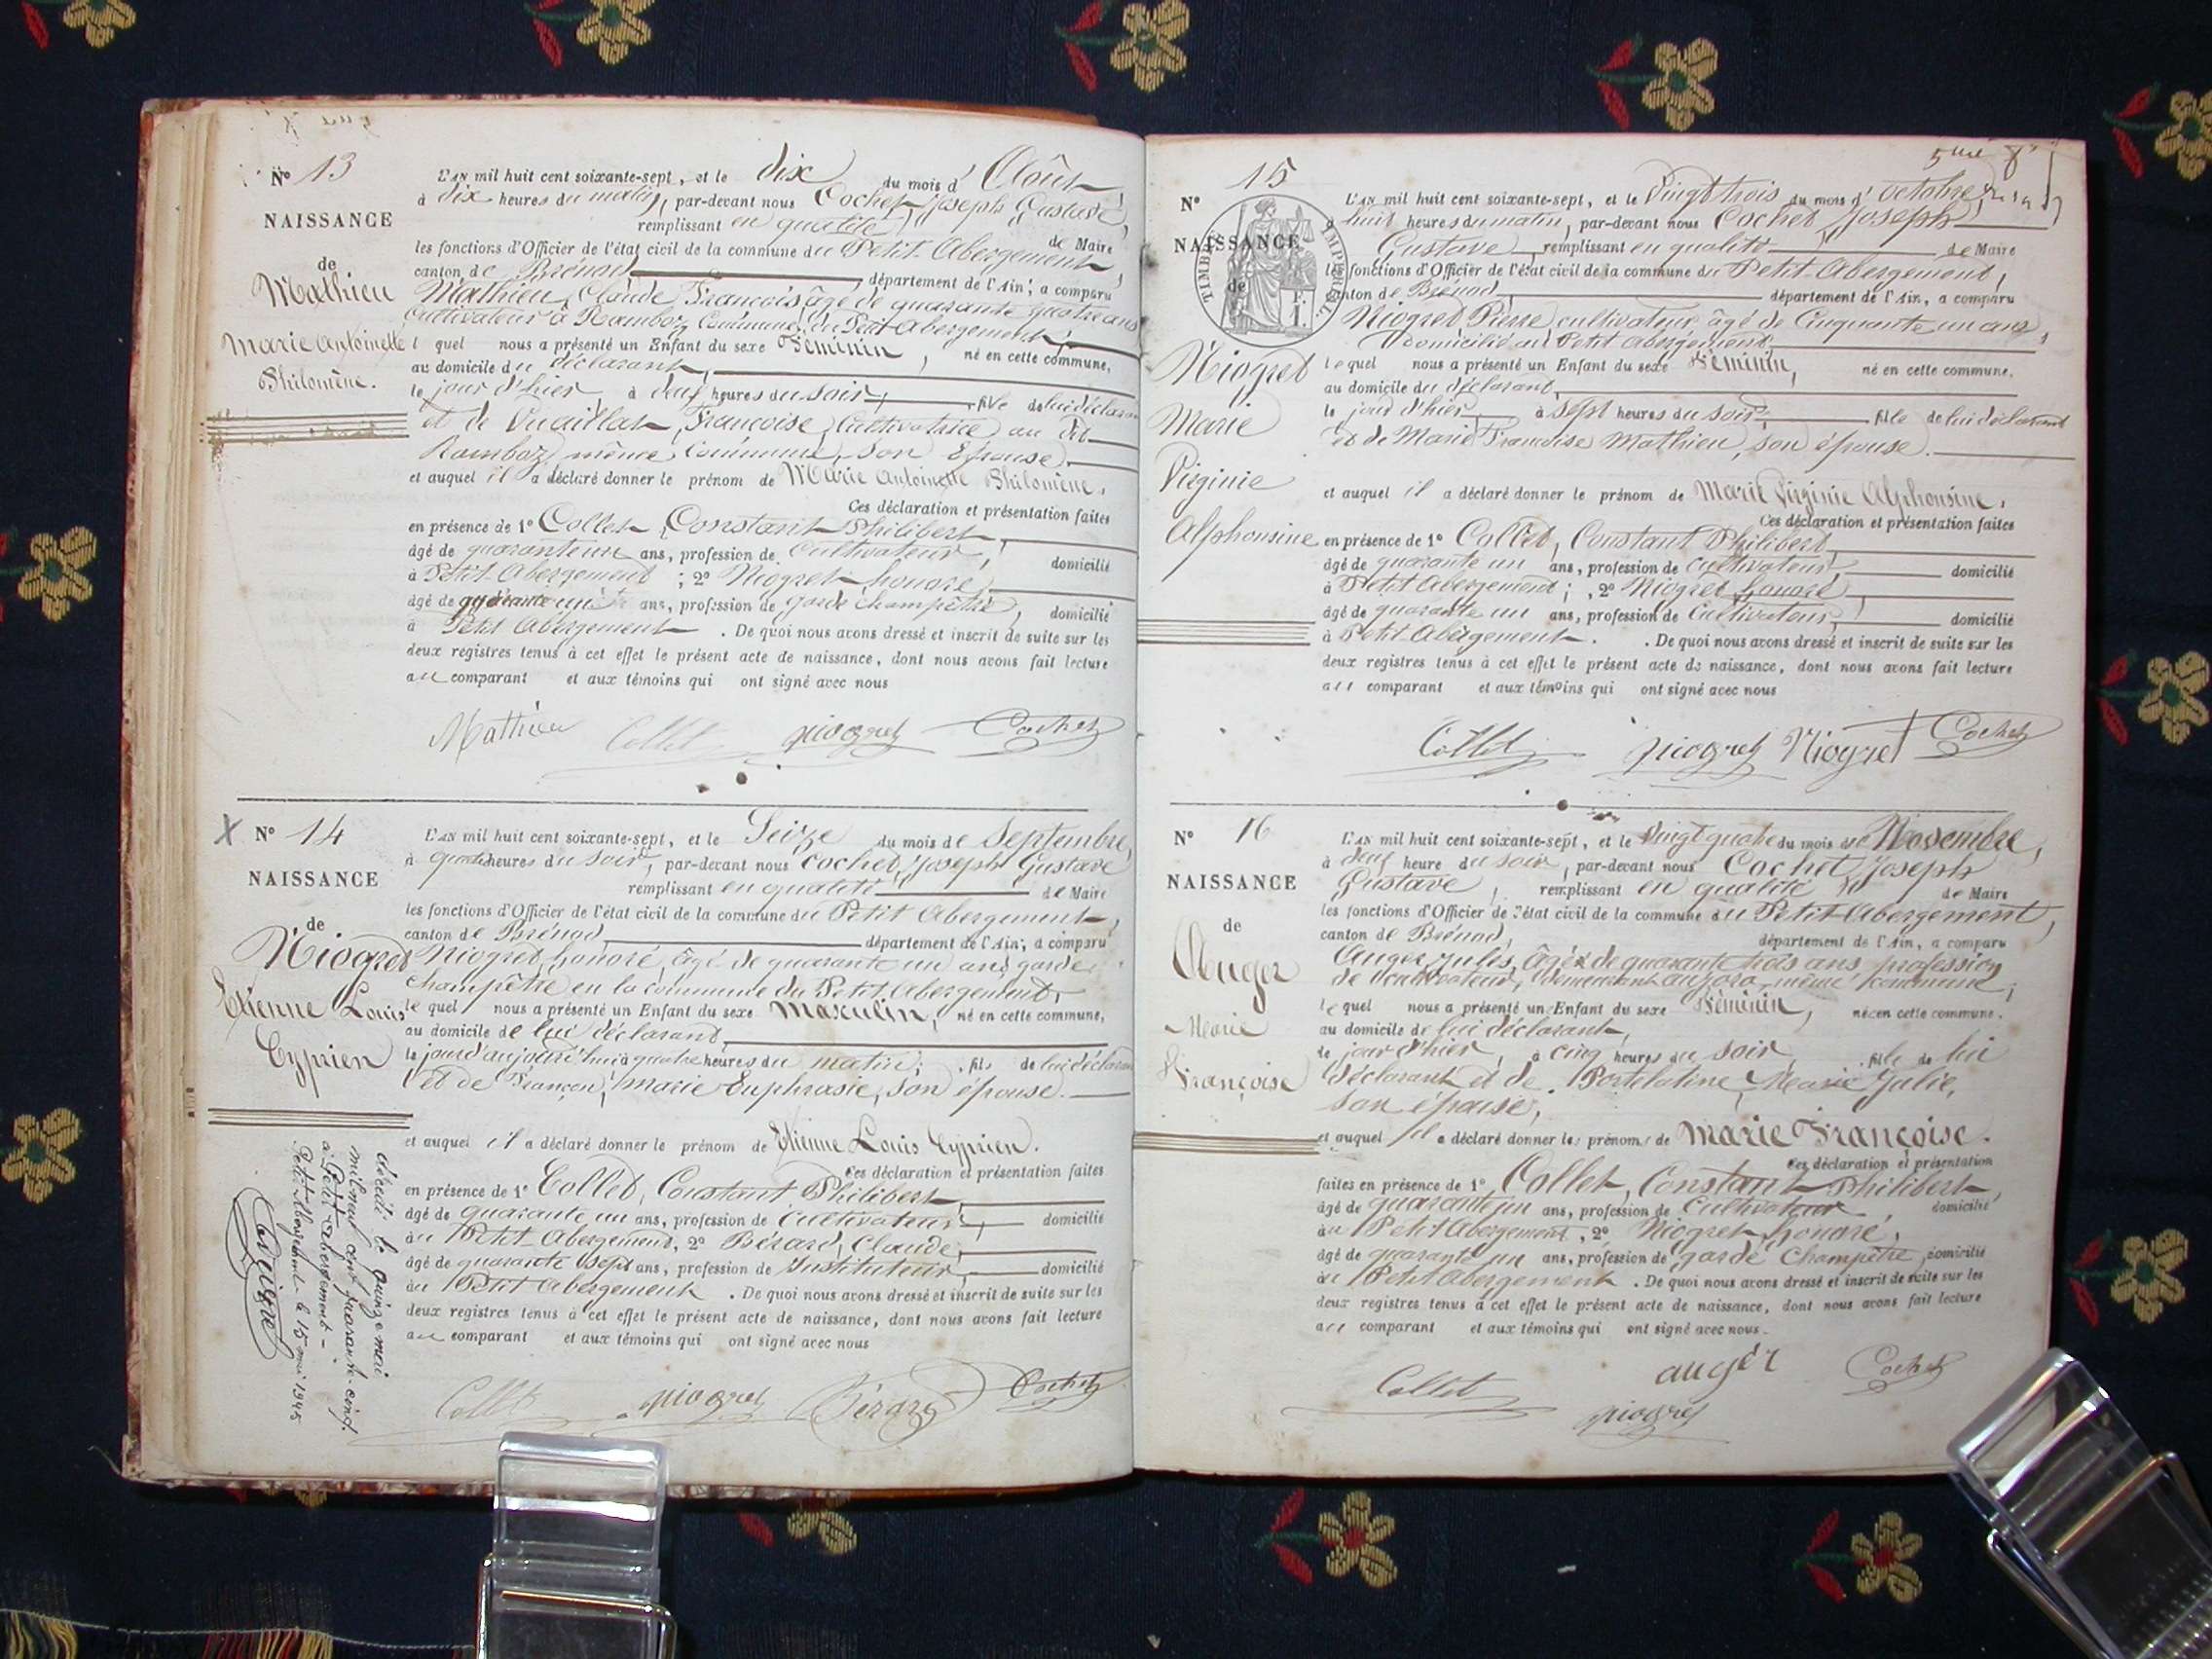 N° 13
NAISSANCE
de
Mathieu
Marie Antoinette
Philomène.
L'AN mil huit cent soixante-sept, et le dix du mois d' Août
à dix heures du matin, par-devant nous Cochet Joseph Gustave,
remplissant en qualité de Maire
les fonctions d'Officier de l'état civil de la commune du Petit-Abergement,
canton de Brénod, département de l'Ain, a comparu
Mathieu, Claude François, âgé de quarante quatre ans
Cultivateur à Ramboz, Commune du Petit-Abergement,
l quel nous a présenté un Enfant du sexe Féminin, né en cette commune,
au domicile du déclarant,
le jour d'hier, à deux heures du soir, fille de lui déclarant
et de Vuaillat, Françoise, Cultivatrice au dit
Ramboz, même Commune, son Épouse.
et auquel il a déclaré donner le prénom de Marie Antoinette Philomène.
Ces déclaration et présentation faites
en présence de 1° Collet, Constant Philibert,
âgé de quarante un ans, profession de Cultivateur, domicilié
à Petit-Abergement ; 2° Niogret honoré
âgé de quarante un ans, profession de garde champêtre, domicilié
à Petit Abergement. De quoi nous avons dressé et inscrit de suite sur les
deux registres tenus à cet effet le présent acte de naissance, dont nous avons fait lecture
au comparant et aux témoins qui ont signé avec nous
Mathieu Collet niogret Cochet
X N° 14
NAISSANCE
de
Niogret
Etienne Louis
Cyprien
L'AN mil huit cent soixante-sept, et le Seize du mois de Septembre,
à quatre heures du soir, par-devant nous Cochet, Joseph Gustave
remplissant en qualité de Maire
les fonctions d'Officier de l'état civil de la commune du Petit Abergement,
canton de Brénod, département de l'Ain, a comparu
Niogret, honoré, âgé de quarante un ans, garde
champêtre en la commune du Petit Abergement,
le quel nous a présenté un Enfant du sexe Masculin, né en cette commune,
au domicile de lui déclarant,
le jour d'aujourd'hui à quatre heures du matin; fils de lui déclarant
et de Françon, Marie Euphrasie, son épouse.
et auquel il a déclaré donner le prénom de Etienne Louis Cyprien.
Ces déclaration et présentation faites
en présence de 1° Collet, Constant Philibert,
âgé de quarante un ans, profession de Cultivateur, domicilié
au Petit-Abergement, 2° Bérard, Claude,
âgé de quarante sept ans, profession de Instituteur, domicilié
au Petit Abergement. De quoi nous avons dressé et inscrit de suite sur les
deux registres tenus à cet effet le présent acte de naissance, dont nous avons fait lecture
au comparant et aux témoins qui ont signé avec nous
Collet niogret Bérard Cochet
décédé le quinze mai
mil neuf cent quarante-cinq
à Petit-Abergement -
Petit Abergement le 15 mai 1945
5me
N° 15
NAISSANCE
de
TIMBRE IMPÉRIAL
F.
1.
Niogret
Marie
Virginie
Alphonsine
L'AN mil huit cent soixante-sept, et le Vingt trois du mois d' octobre
à huit heures du matin, par-devant nous Cochet, Joseph
Gustave remplissant en qualité de Maire
les fonctions d'Officier de l'état civil de la commune du Petit-Abergement,
canton de Brénod, département de l'Ain, a comparu
Niogret Pierre, cultivateur, âgé de Cinquante un ans,
domicilié au Petit Abergement,
lequel nous a présenté un Enfant du sexe Féminin, né en cette commune,
au domicile du déclarant,
le jour d'hier, à sept heures du soir, fille de lui déclarant
et de Marie Françoise Mathieu, son épouse.
et auquel il a déclaré donner le prénom de Marie Virginie Alphonsine.
Ces déclaration et présentation faites
en présence de 1° Collet, Constant Philibert,
âgé de quarante un ans, profession de Cultivateur, domicilié
à Petit Abergement ; 2° Niogret honoré,
âgé de quarante un ans, profession de Cultivateur, domicilié
à Petit-Abergement. De quoi nous avons dressé et inscrit de suite sur les
deux registres tenus à cet effet le présent acte de naissance, dont nous avons fait lecture
au comparant et aux témoins qui ont signé avec nous
Collet niogret Niogret Cochet
N° 16
NAISSANCE
de
Auger
Marie
Françoise
L'AN mil huit cent soixante-sept, et le Vingt quatre du mois de Novembre,
à deux heure du soir, par-devant nous Cochet Joseph
Gustave, remplissant en qualité de Maire
les fonctions d'Officier de l'état civil de la commune du Petit-Abergement,
canton de Brénod, département de l'Ain, a comparu
Auger Jules, âgé de quarante trois ans profession
de Cultivateur, demeurant au Jora, même commune,
lequel nous a présenté un Enfant du sexe Féminin, né en cette commune,
au domicile de lui déclarant,
le jour d'hier, à cinq heures du soir, fille de lui
déclarant et de Portelatine, Marie Julie,
son épouse,
et auquel il a déclaré donner les prénoms de Marie Françoise.
Ces déclaration et présentation
faites en présence de 1° Collet, Constant Philibert,
âgé de quarante un ans, profession de Cultivateur, domicilié
au Petit Abergement, 2° Niogret honoré,
âgé de quarante un ans, profession de garde Champêtre, domicilié
au Petit Abergement. De quoi nous avons dressé et inscrit de suite sur les
deux registres tenus à cet effet le présent acte de naissance, dont nous avons fait lecture
au comparant et aux témoins qui ont signé avec nous.
Collet auger Cochet
niogret